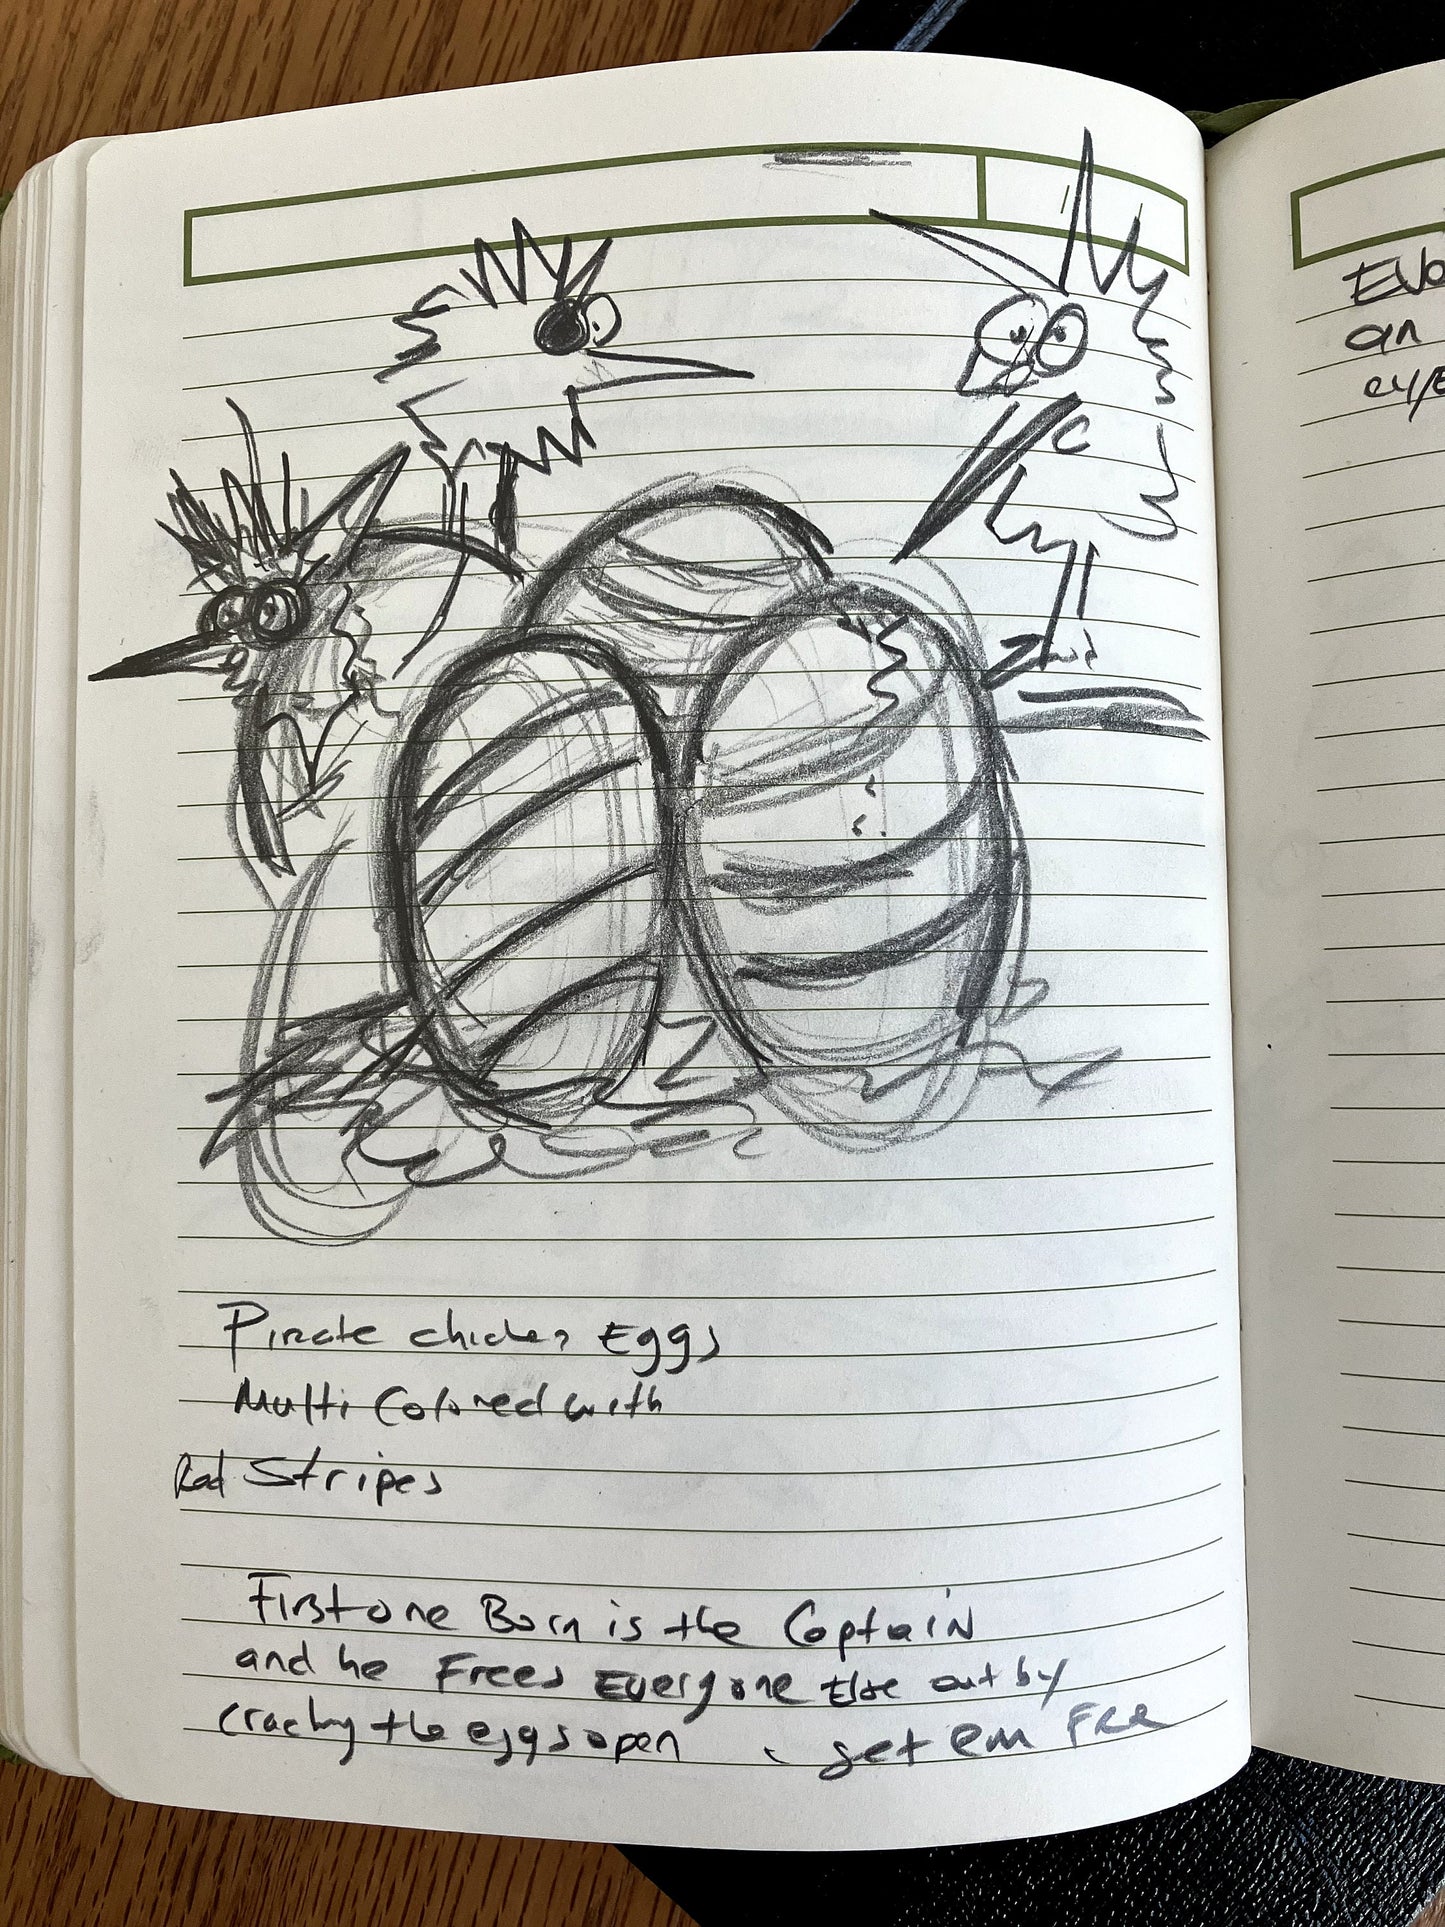 Pirate chicken Eggs
Multi Colored with
Red Stripes
First one Born is the Captain
and he Frees Everyone Else out by
cracking the eggs open get em Free
an